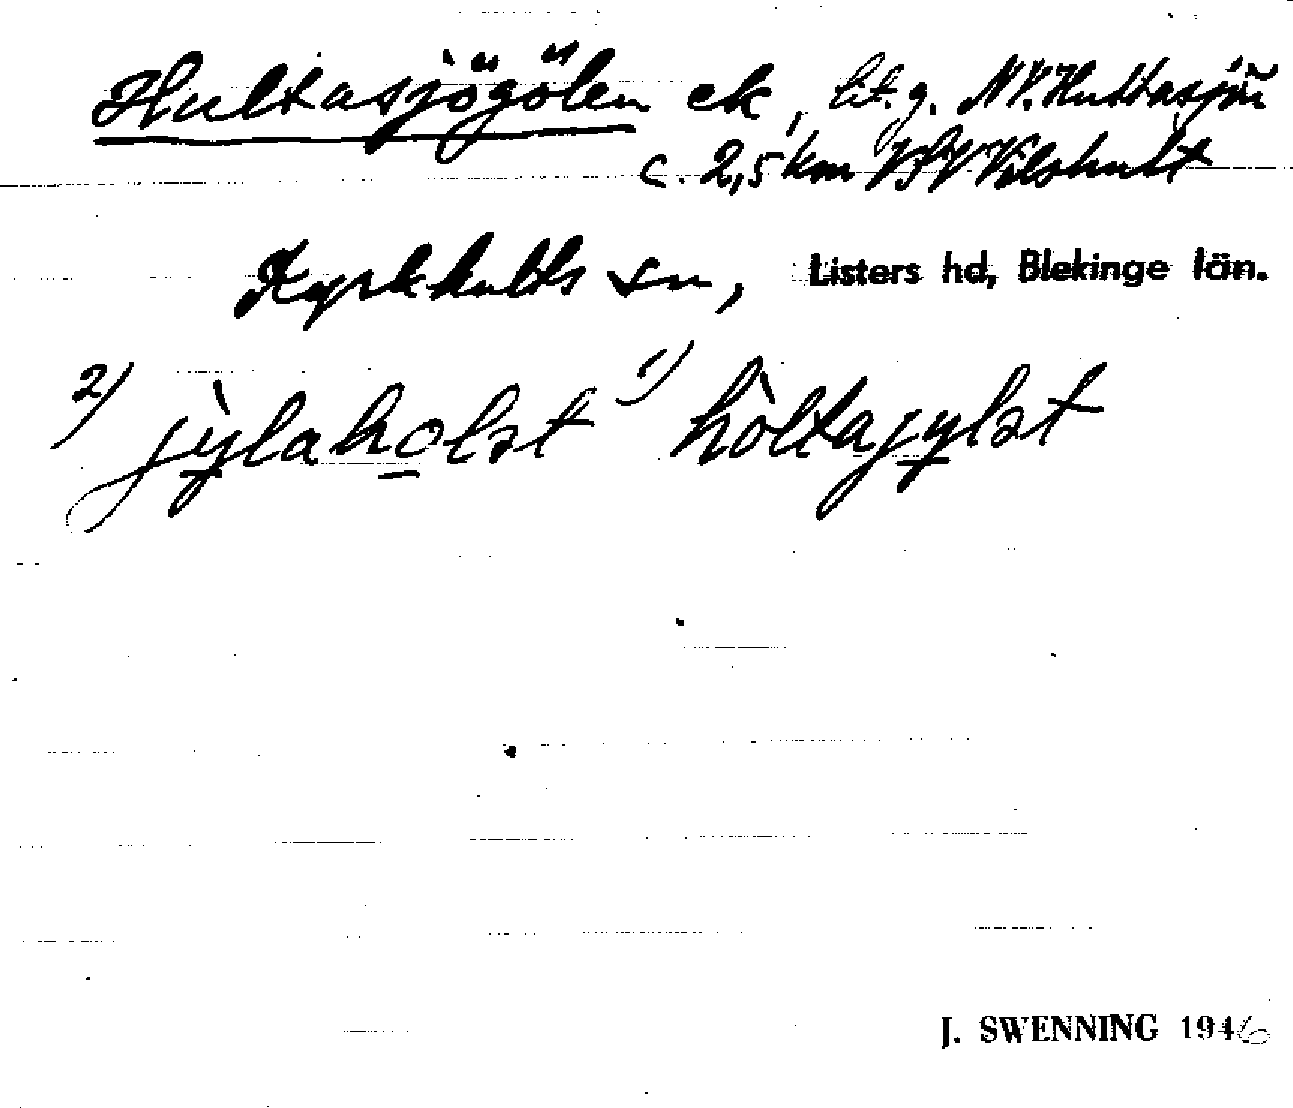 Hultasjögölen ek, lit. g. NV. Hultasjön
c. 2,5 km VSV Vilshult
Kyrkhults sn, Listers hd, Blekinge län.
2) jỳlaholst 1) hòltajylst
J. SWENNING 1946